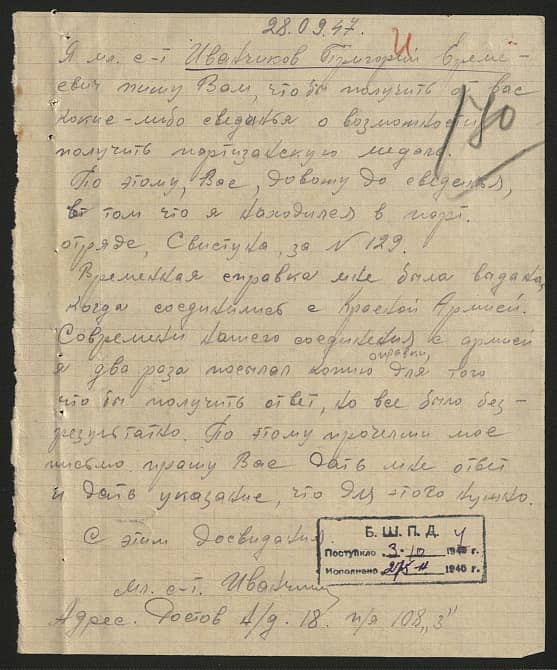 28.09.47.
И
Я мл. с-т Иванчиков Григорий Ереме-
евич пишу Вам, что бы получить от вас
какие-либо сведенья о возможности
получить партизанскую медаль.
180
По этому, Вас, довожу до сведенья,
в том что я находился в парт.
отряде, Свистука, за № 129.
Временная справка мне была выдана,
когда соединились с Красной Армией.
Современи нашего соединения с армией
я два раза посылал копию справки, для того
что бы получить ответ, но все было без-
результатно. По этому прочетши мое
письмо прашу Вас дать мне ответ
и дать указание, что для этого нужно.
С этим досвидания.
Б. Ш. П. Д. 4
Поступило 3.10 194 г.
Исполнено 194 г.
Мл. с-т. Иванчик
Адрес. Ростов 4/д. 18. п/я 108 „З"